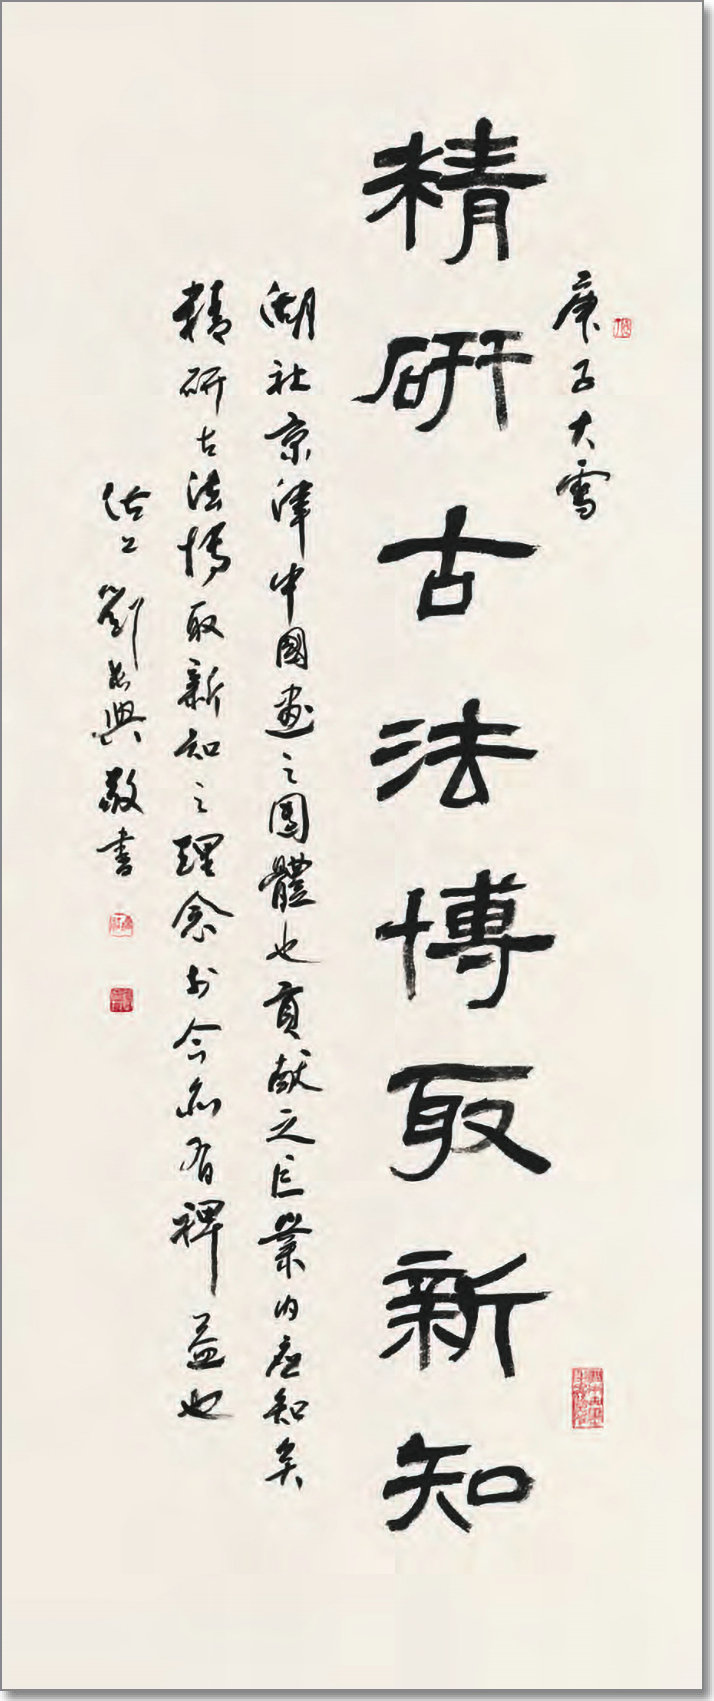 庚子大雪
精研古法博取新知
湖社京津中國畫之團體也貢献之巨業內應知矣
精研古法博取新知之理念於今亦有裨益也
沽上劉書興敬書